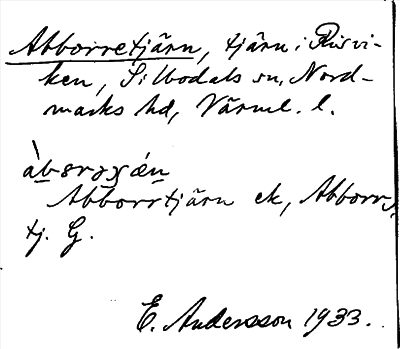 Abborretjärn, tjärn i Risvi-
ken, Silbodals sn, Nord-
marks hd, Värml. l.
Abborrtjärn ek, Abborr-
tj. G.
E. Andersson 1933.